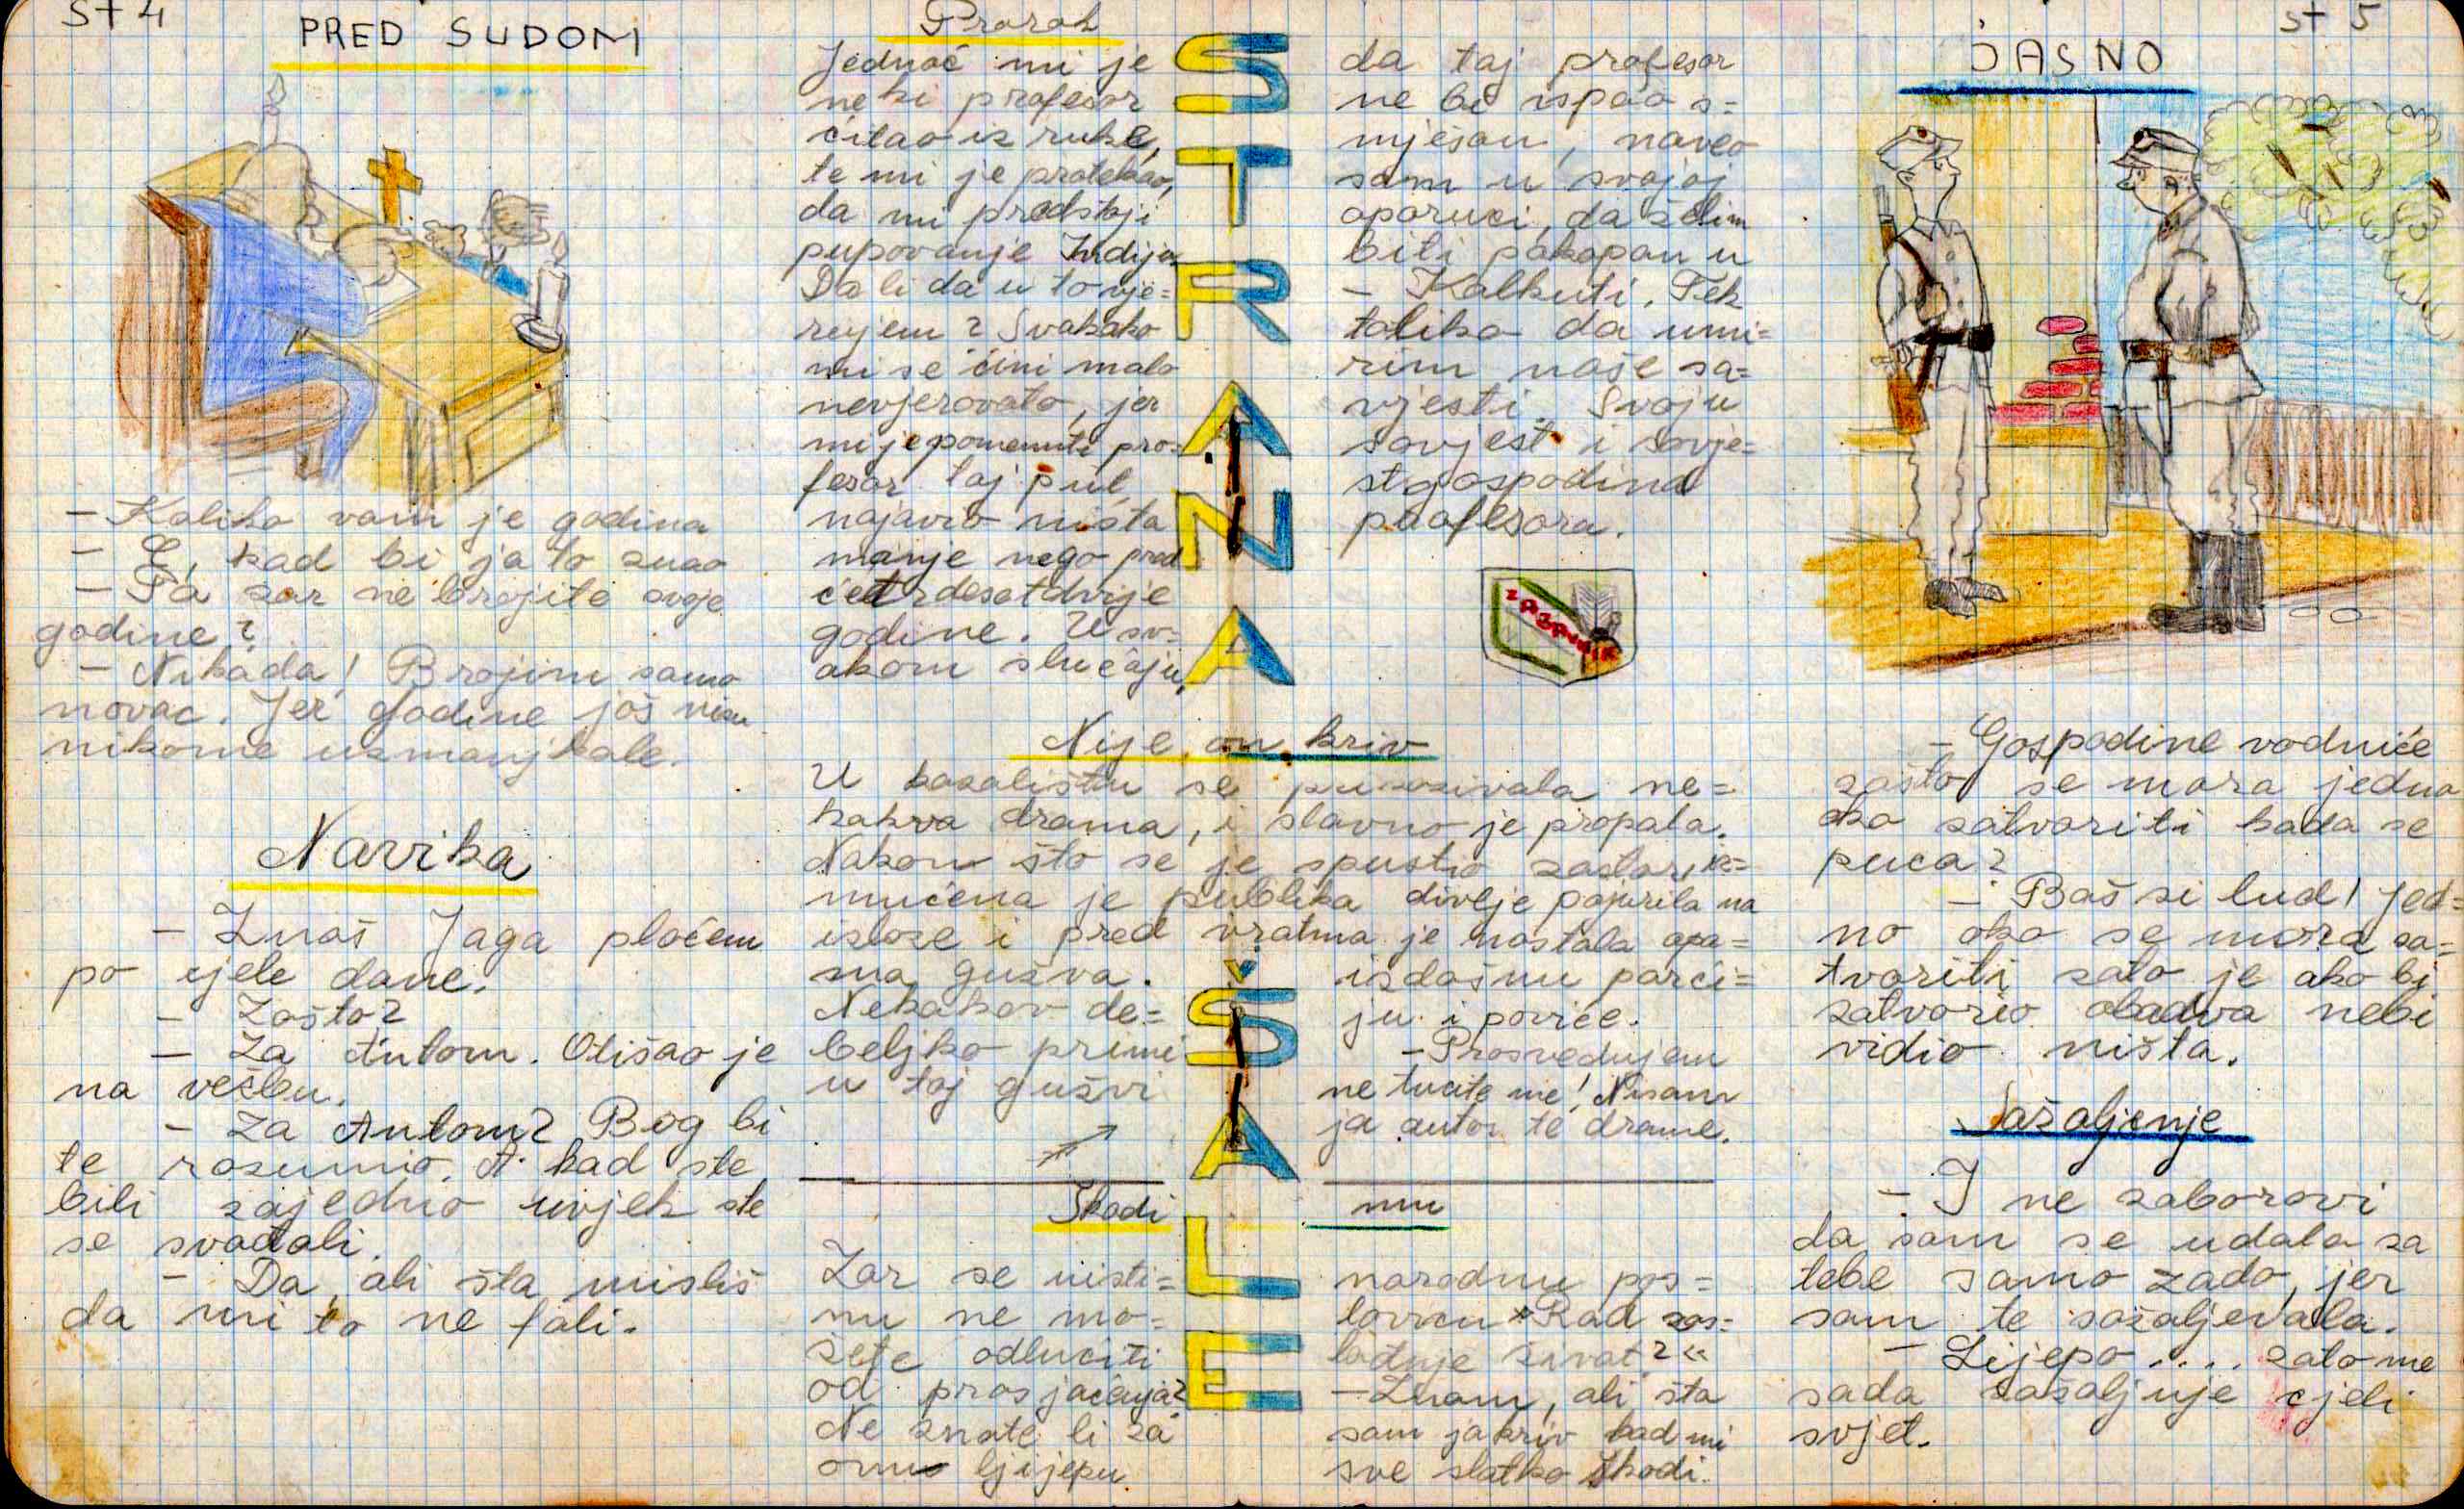 st 4
PRED SUDOM
- Koliko vam je godina
- E, kad bi ja to znao
- Pa zar ne brojite svoje
godine?
- Nikada! Brojim samo
novac. Jer godine još nisu
nikome uzmanjkale.
Navika
- Znaš Jaga plačem
po cjele dane.
- Zašto?
- Za Antom. Otišao je
na vežbu.
- Za Antom? Bog bi
te razumio. A kad ste
bili zajedno uvjek ste
se svađali.
- Da, ali šta misliš
da mi to ne fali.
STRANA
ŠALE
Prorok
Jednoč mi je
neki profesor
čitao iz ruke,
te mi je prorekao,
da mi predstoji
pupovanje Indija
Da li da u to vje=
rujem? Svakako
mi se čini malo
nevjerovato, jer
mi je pomenuti pro=
fesor taj put,
najavio ništa
manje nego pred
četrdesetdvije
godine. U sv=
akom slučaju,
da taj profesor
ne bi ispao s=
mješan, naveo
sam u svojoj
oporuci, da želim
biti pokopan u
- Kalkuti. Tek
toliko da umi=
rim naše sa=
vjesti. Svoju
savjest i savje=
st gospodina
profesora.
ZABAVNIK
Nije on kriv
U kazalištu se prikazivala ne=
kakva drama, i slavno je propala.
Nakon što se je spustio zastor, iz=
mučena je publika divlje pojurila na
izlaze i pred vratma je nastala opa=
sna gužva.
Nekakov de=
beljko primi
u toj gužvi
izdašnu porci=
ju i poviče.
- Prosvedujem
ne tucite me! Nisam
ja autor te drame.
Škodi mu
Zar se uisti=
nu ne mo=
žete odlučiti
od prosjačenja?
Ne znate li za
onu ljijepu
narodnu pos=
lovicu »Rad zas=
lađuje život?«
- Znam, ali šta
sam ja kriv kad mi
sve slatko škodi.
st 5
JASNO
- Gospodine vodniče
zašto se mora jedno
oko zatvoriti kada se
puca?
- Baš si lud! Jed=
no oko se mora za=
tvoriti zato je ako bi
zatvorio obadva nebi
vidio ništa.
Sažaljenje
- I ne zaboravi
da sam se udala za
tebe samo zado, jer
sam te sažaljevala.
- Lijepo.... zato me
sada sažaljuje cjeli
svjet.